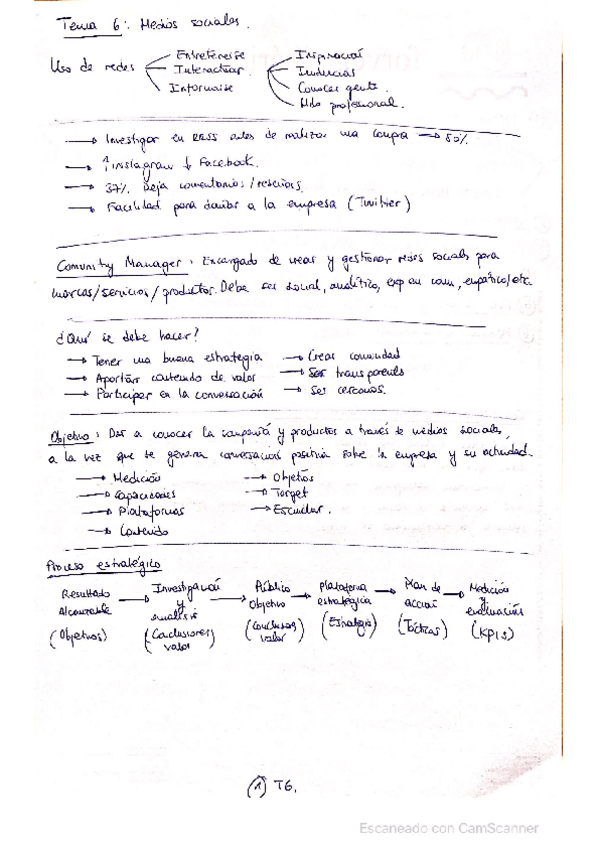 Tema 6: Medios sociales.
Uso de redes
Entretenerse
Interactuar
Informarse
Inspiración
Tendencias
Conocer gente
Vida profesional.
→ Investigar en RRSS antes de realizar una compra → 50%
→ ↑Instagram ↓ Facebook.
→ 37% deja comentarios/reseñas
→ Facilidad para dañar a la empresa (Twitter)
Comunity Manager: Encargado de crear y gestionar redes sociales para
marcas/servicios/productos. Debe ser social, analítico, exp en com, empático/etc.
¿Qué se debe hacer?
→ Tener una buena estrategia → Crear comunidad
→ Aportar contenido de valor → Ser transparente
→ Participar en la conversación → Ser cercanos.
Objetivo: Dar a conocer la compañía y productos a través de medios sociales,
a la vez que te genera conversación positiva sobre la empresa y su actividad.
→ Medición → Objetivos
→ Capacidades → Target
→ Plataformas → Escuchar.
→ Contenido
Proceso estratégico
Resultado Alcanzable → Investigación y análisis → Público Objetivo → Plataforma estratégica → Plan de acción → Medición y evaluación
(Objetivos) (Conclusiones valor) (Conclusiones valor) (Estrategia) (Tácticas) (KPIs)
(1) T6.
Escaneado con CamScanner